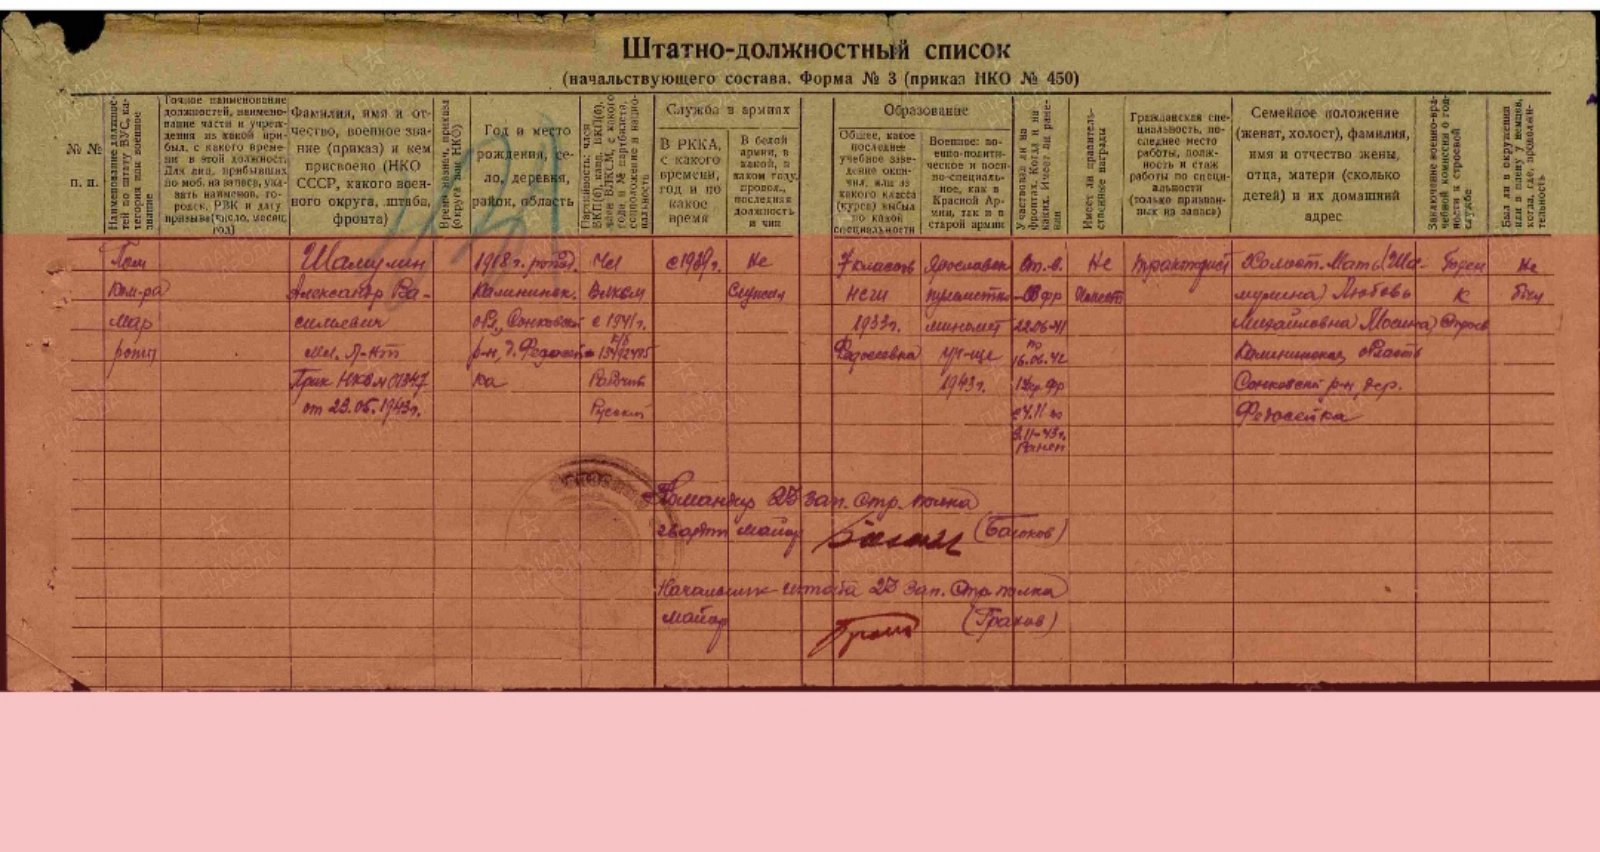 Штатно-должностный список
(начальствующего состава. Форма № 3 (приказ НКО № 450)
№ № п. п.
Наименование должностей по штату ВУС, категория или военное звание
Точное наименование
должностей, наименование части и учреждения из какой прибыл, с какого времени в этой должност.
Для лиц, прибывших по моб. из запаса, указать наименов. городск. РВК и дату призыва (число, месяц, год)
Фамилия, имя и отчество, военное звание (приказ) и кем присвоено (НКО СССР, какого военного округа, штаба, фронта)
Год и место рождения, село, деревня, район, область
Служба в армиях
В РККА, с какого времени, год и по какое время
В белой армии, в какой, в каком году, провол., последняя должность и чин
Образование
Общее, какое последнее учебное заведение окончил, или из какого класса (курса) выбыл по какой специальности
Военное: военно-политическое и военно-специальное, как в Красной Армии, так и в старой армии
Участвовал ли на фронтах. Когда и на каких. Имеет ли ранения
Имеет ли правительственные награды
Гражданская специальность, последнее место работы, должность и стаж работы по специальности (только призванных из запаса)
Семейное положение (женат, холост), фамилия, имя и отчество жены, отца, матери (сколько детей) и их домашний адрес
Заключение военно-врачебной комиссии о годности к строевой службе
Был ли в окружении или в плену у немцев, когда, где, продолжительность
Пом
ком-ра
мар
роты
Шамулин
Александр Ва-
сильевич
Мл. Л-нт
Прик НКО № 01347
от 23.05.1943г.
1918г. рожд.
Калининск.
обл., Сонковский
р-н, д. Федосей-
ка
Чл
Влксм
с 1941г.
13492485
Рабочий
Русский
с 1939г.
Не
Служил
7 классов
1933г.
Ярославск
пулеметно
миномет
уч-ще
1943г.
22.06.41
по
16.06.42
1 Укр. Фр
с 4.11 по
9.11-43г.
Ранен
Не
имеет
Тракторист
Холост. Мать (Ша-
мулина) Любовь
Михайловна
Калининская область
Сонковский р-н дер.
Федосейка
Годен
к
Не
был
Командир 27 зап. стр. полка
гвардии майор (Батков)
Начальник штаба 27 зап. стр. полка
майор (Грахов)